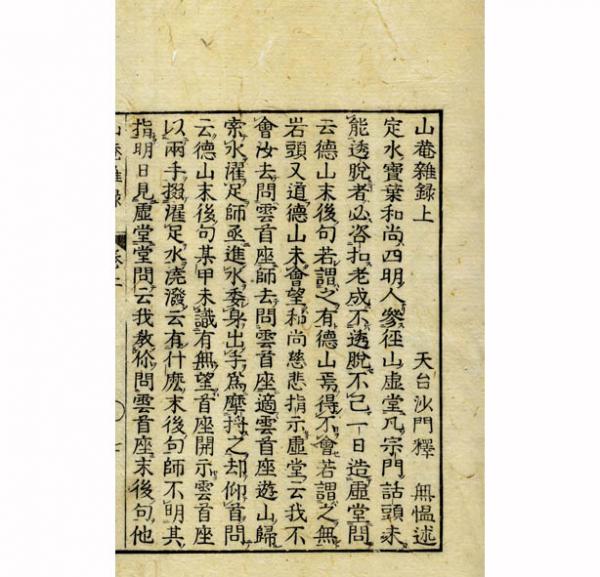 山菴雜録上
天台沙門釋 無愠述
定水寶葉和尚四明人參徑山虛堂凡宗門詰頭未
能透脫者必咨扣老成不透脫不已一日造虛堂問
云德山末後句若謂之有德山焉得不會若謂之無
岩頭又道德山未會望和尚慈悲指示虛堂云我不
會汝去問雲首座師去問雲首座適雲首座遊山歸
索水濯足師亟進水委身出手為摩捋之却仰首問
云德山末後句某甲未識有無望首座開示雲首座
以兩手掇濯足水澆潑云有什麽末後句師不明其
指明日見虛堂堂問云我教你問雲首座末後句他
山菴雜録